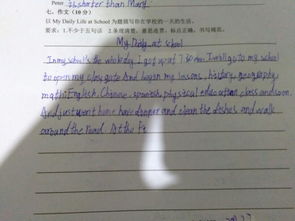 Peter is shorter than Mary.
七、作文(10分)
以 My Daily Life at School 为题描写你在学校的一天的生活。
要求：1.不少于五句话 2.条理清楚，意思连贯，标点正确，书写规范。
My Daily at school
In my school's the whole day. I got up at 7 I will go to my school
to open my class And began my lessons, history, geography
math, English, Chinese, spanish, physical education class and soon.
And just went home have danper and clean the dishes and walk
around the road. At the